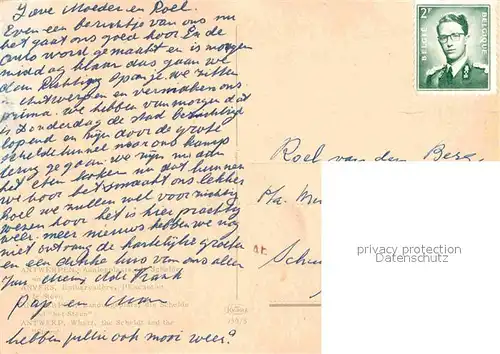 Lieve Moeder en Roel.
Even een berichtje van ons nu
het gaat ons goed hoor En de
auto word gemaakt en is morgen
middag klaar dus gaan we
dan richting Spanje. we zitten
in Antwerpen en vermaken ons
prima. we hebben vanmorgen dat
is Donderdag de stad bezichtigd
lopend en zijn door de grote
scheldetunnel naar ons kamp
terug gegaan. we zijn nu aan
het eten koken nu dat kunnen
we hoor het smaakt ons lekker
hoel we zullen wel voorzichtig
wezen hoor het is hier prachtig
weer. meer nieuws hebben we nog
niet ontvang de hartelijke groeten
en een dikke zoen van ons allen
Jan Henk
Pap en Mam
hebben jullie ook mooi weer?
2F
BELGIË BELGIQUE
Roel van den Berg
ANTWERPEN
ANVERS
"het Steen"
ANTWERP, Wharf, the Scheldt and the
privacy protection
Datenschutz